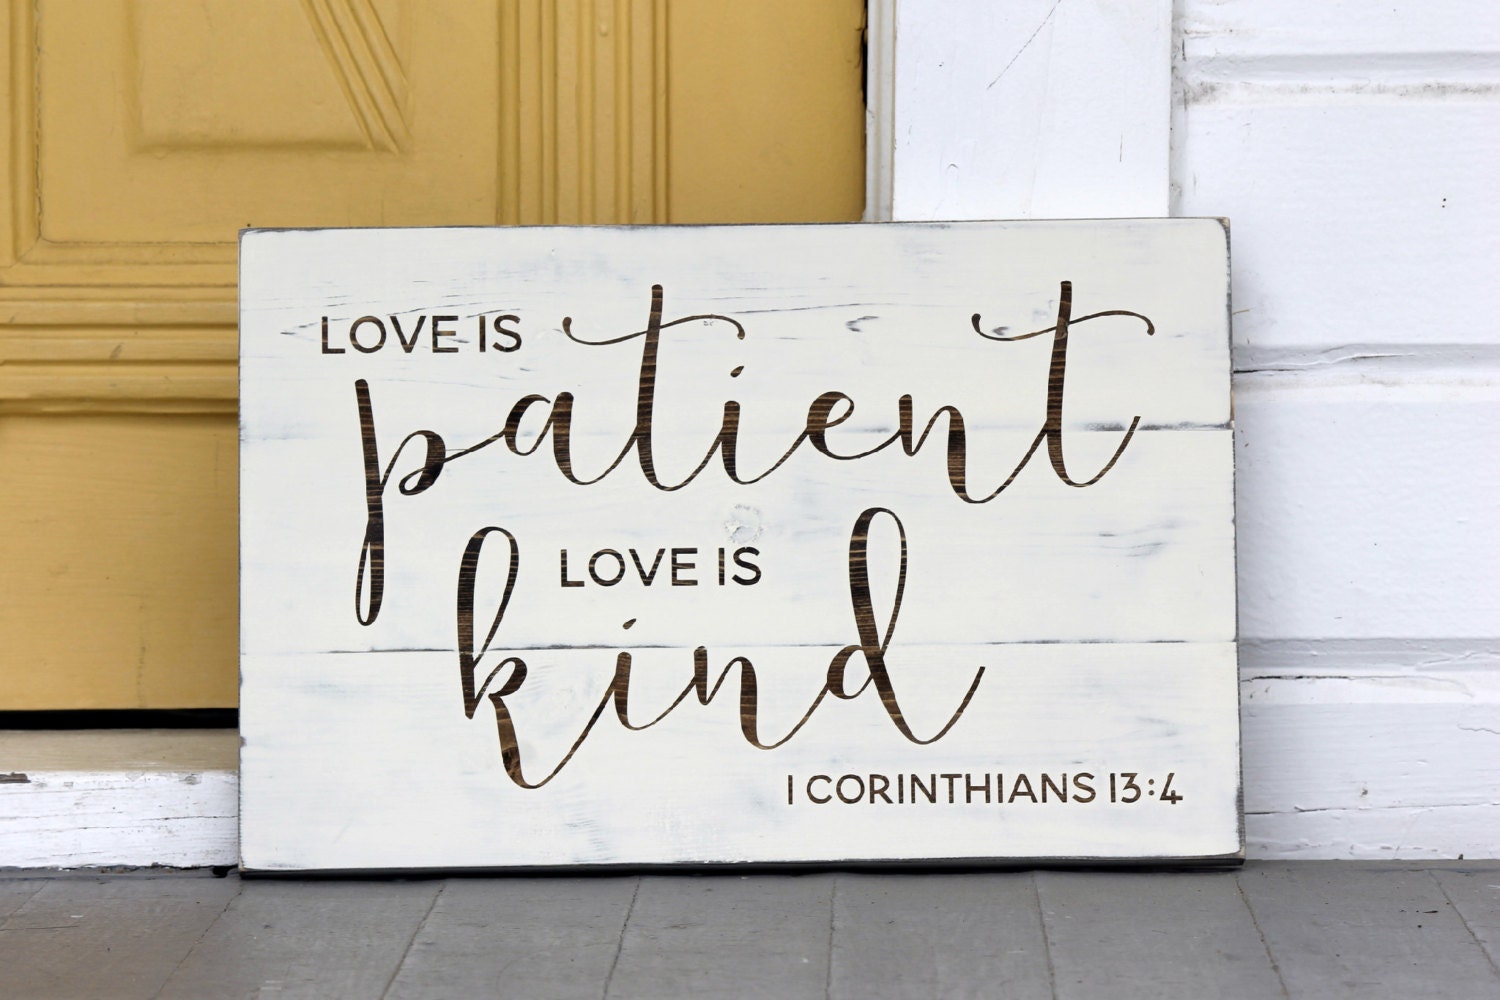 LOVE IS
patient
LOVE IS
kind
1 CORINTHIANS 13:4